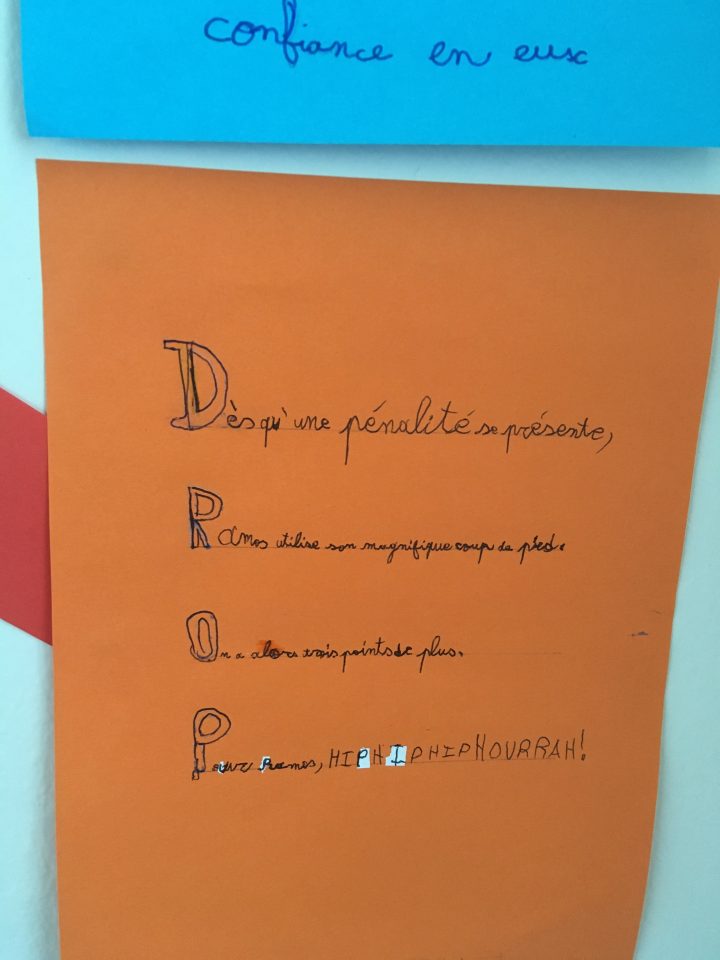 confiance en eux
Dès qu'une pénalité se présente,
Ramos utilise son magnifique coup de pied.
On a alors trois points de plus.
Pour Ramos, HIP HIP HIP HOURRAH!